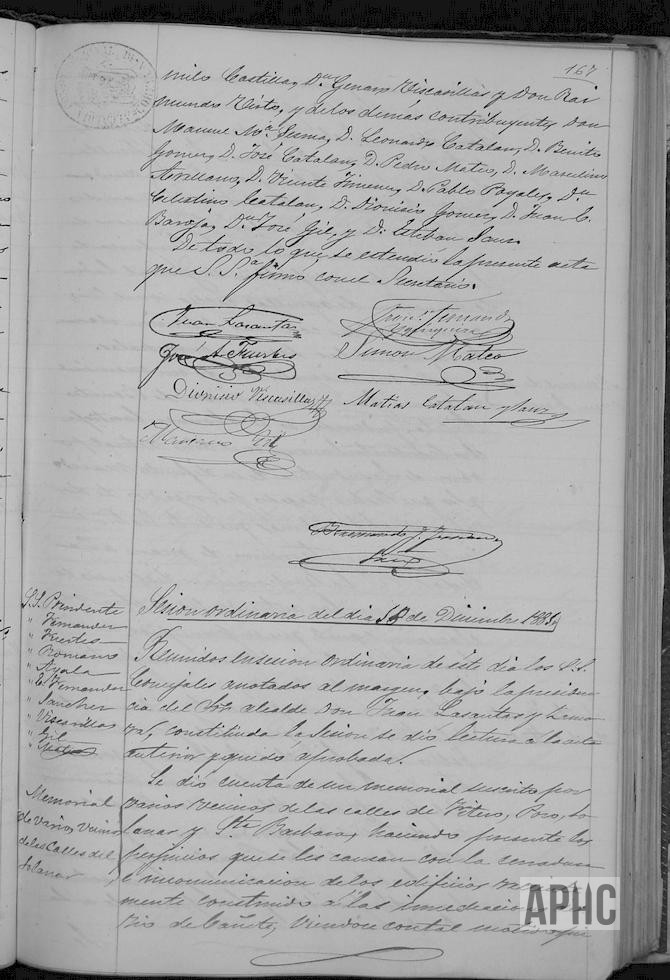 167
milo Castilla, Dn Genaro Viscasillas y Don Rai
mundo Virto, y de los demás contribuyentes Don
Manuel Ma. Sesma, D. Leonardo Catalan, D. Benito
Gomez, D. José Catalan, D. Pedro Mateo, D. Marcelino
Arellano, D. Vicente Jimenez, D. Pablo Poyales, Dn
Celestino Catalan, D. Dionisio Gomez, D. Juan C.
Baroja, Dn José Gil, y D. Esteban Sanz.
De todo lo que se estendió la presente acta
que S. Sa. firmó con el Secretario.
Juan Lasantas
José A. Fuertes
Simon Mateo
Dionisio Viscasillas
Matias Catalan y Sanz
Gil
S.S. Presidente
" Fernandez
" Fuertes
" Romano
" Ayala
" E. Fernandez
" Sanchez
" Viscasillas
" Gil
" Mateo
Sesion ordinaria del dia de Diciembre
Reunidos en sesion ordinaria de éste dia los S.S.
Concejales anotados al margen, bajo la presiden
cia del Sor alcalde Don Juan Lasantas y
constituida la Sesion se dió lectura a la acta
anterior y quedó aprobada.
Memorial
de varios vecinos
de las calles del
Solanar
Se dió cuenta de un memorial suscrito por
varios vecinos de las calles de Fitero, Pozo, So
lanar y Sta Barbara, haciendo presente los
perjuicios que se les causan con la cerradura
é incomunicacion de los edificios
mente construidos á las inmediaciones
Rio de Cañete, viendose con tal motivo
APHC